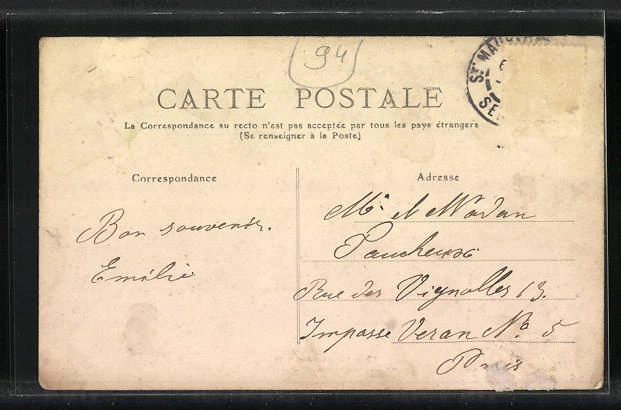 94
CARTE POSTALE
La Correspondance au recto n'est pas acceptée par tous les pays étrangers
(Se renseigner à la Poste)
Correspondance
Adresse
Bon souvenir.
Emilie
Mr et Madan
Rue des Vignolles 13.
Impasse Veran No 5
Paris